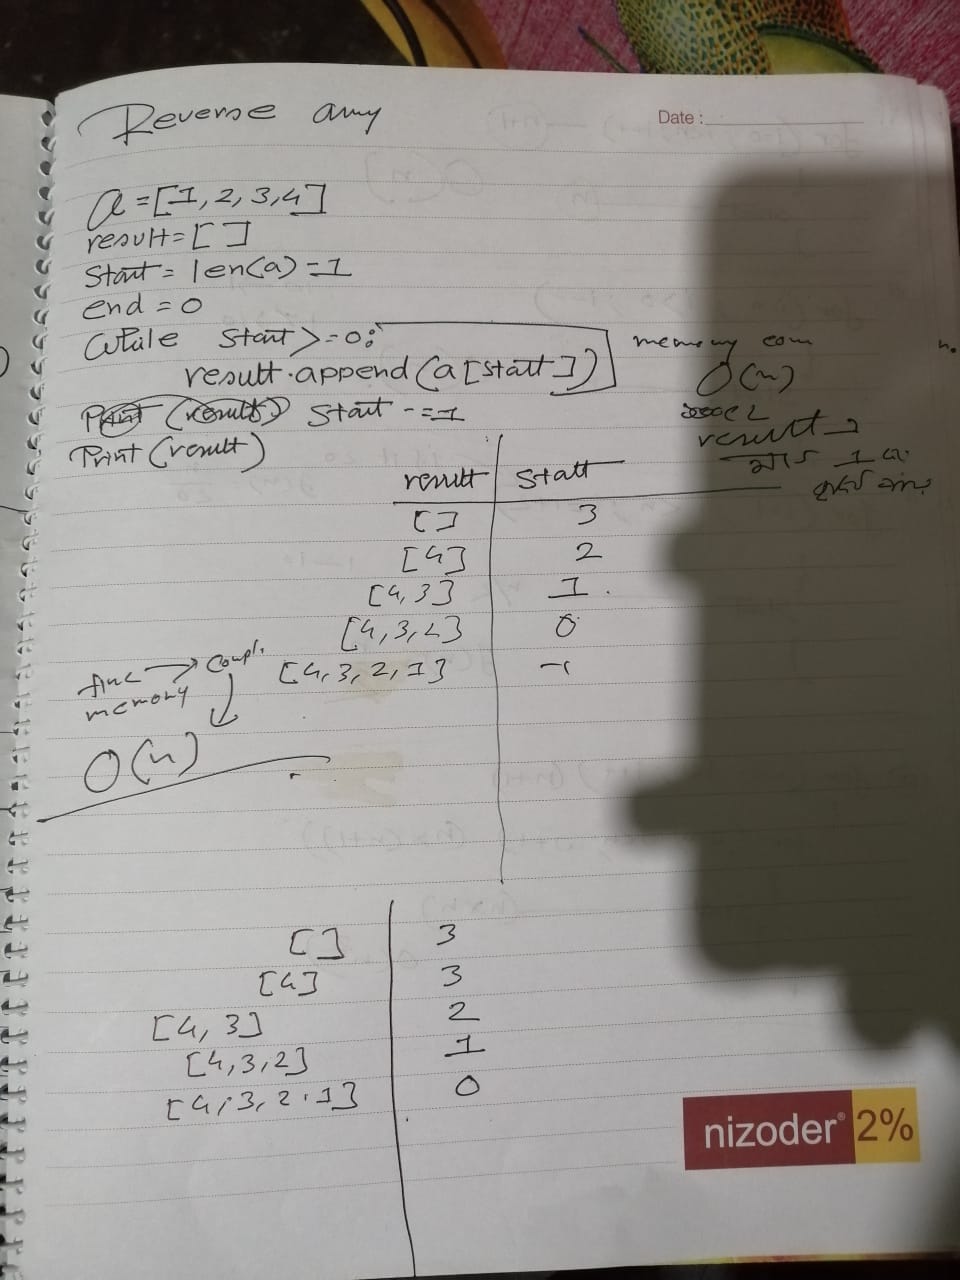 Reverse array
Date :
a = [1, 2, 3, 4]
result = [ ]
Start = len(a) - 1
end = 0
while Start >= 0:
result.append (a[start])
Print (result) Start -= 1
Print (result)
memory com
O(n)
result
1
result Start
[] 3
[4] 2
[4, 3] 1
[4, 3, 2] 0
[4, 3, 2, 1] -1
memory
O(n)
[] 3
[4] 3
[4, 3] 2
[4, 3, 2] 1
[4, 3, 2, 1] 0
nizoder® 2%